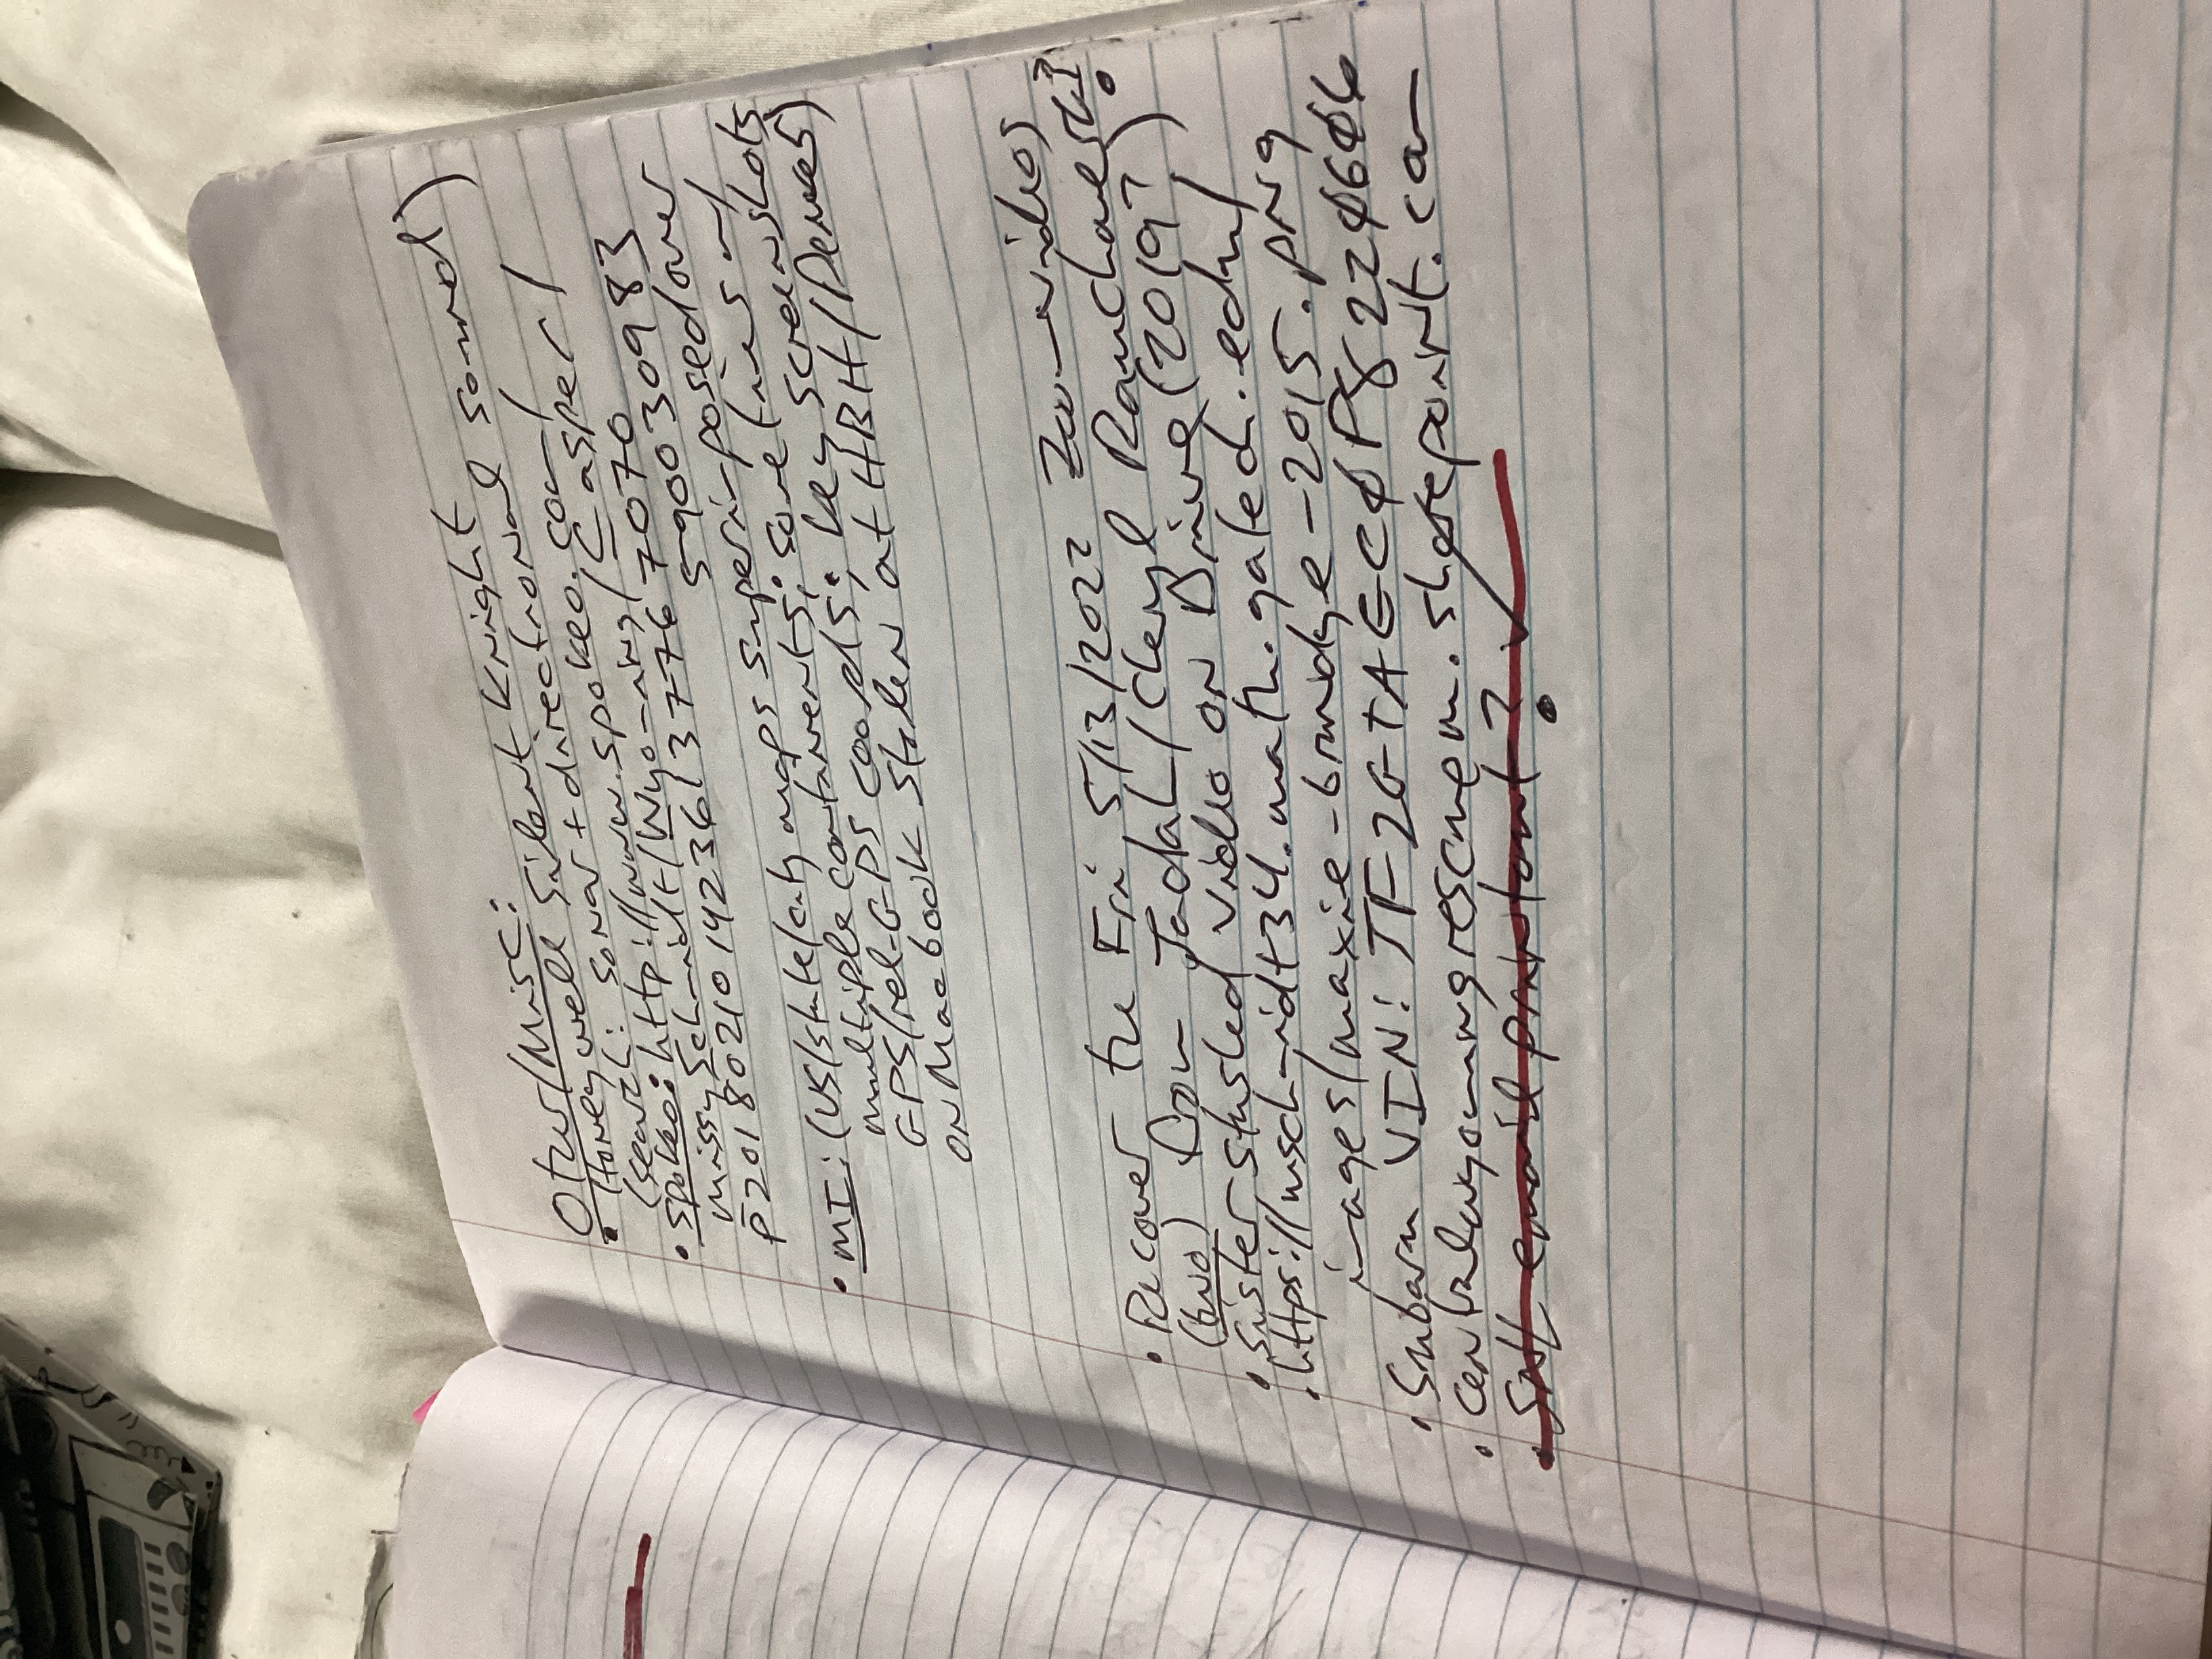 Other/Misc:
• Honeywell Silent Knight
(search: sonar + directional sound)
• Spokeo: http://www.spokeo.com/
Missy Schmidt/Wyoming/Casper/
p201802101423613776 7070
590030983
• MI: (US/state/city maps superimposed over
multiple continents; sometimes w/
GPS/rel-GPS coords; key screenshots
on Macbook stolen at HBH/Denver)
• Recover the Fri 5/13/2022 Zoom videos
(two) from Jadah/Cheryl Ranchoweski?
• Sister stashed video on Drive (2019?)
• https://mschmidt34.math.gatech.edu/
images/maxie-brundge-2015.png
• Subaru VIN: JF2GTAECØP822Ø6Ø6
• centralwyomingrescuem.sharepoint.com
• SNL email printout? ✓